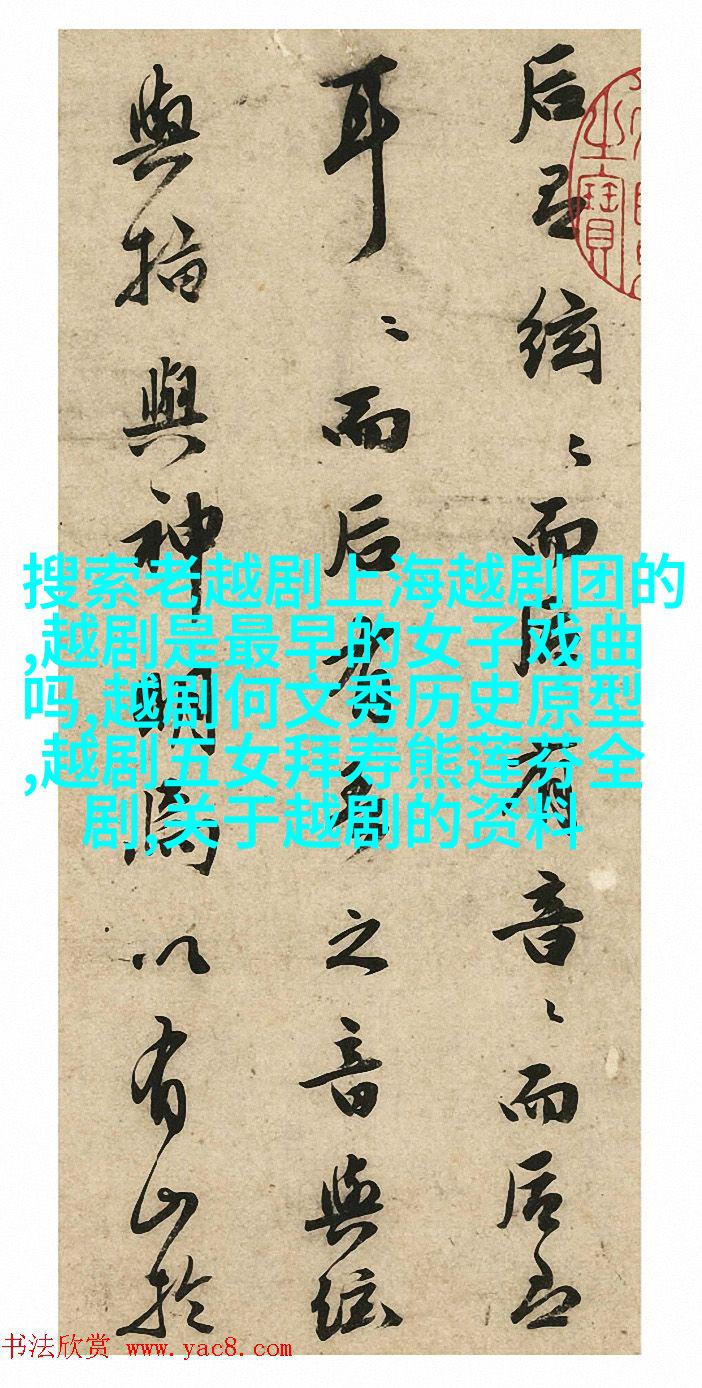 后絃〻而后有音〻而后
耳〻而后之音與絃
與指與神明以有山於
之寶
搜索老越剧上海越剧团的
,越剧是最早的女子戏曲
吗,越剧何文秀历史原型
,越剧五女拜寿熊莲芬全
剧,关于越剧的资料
书法欣赏 www.yac8.com